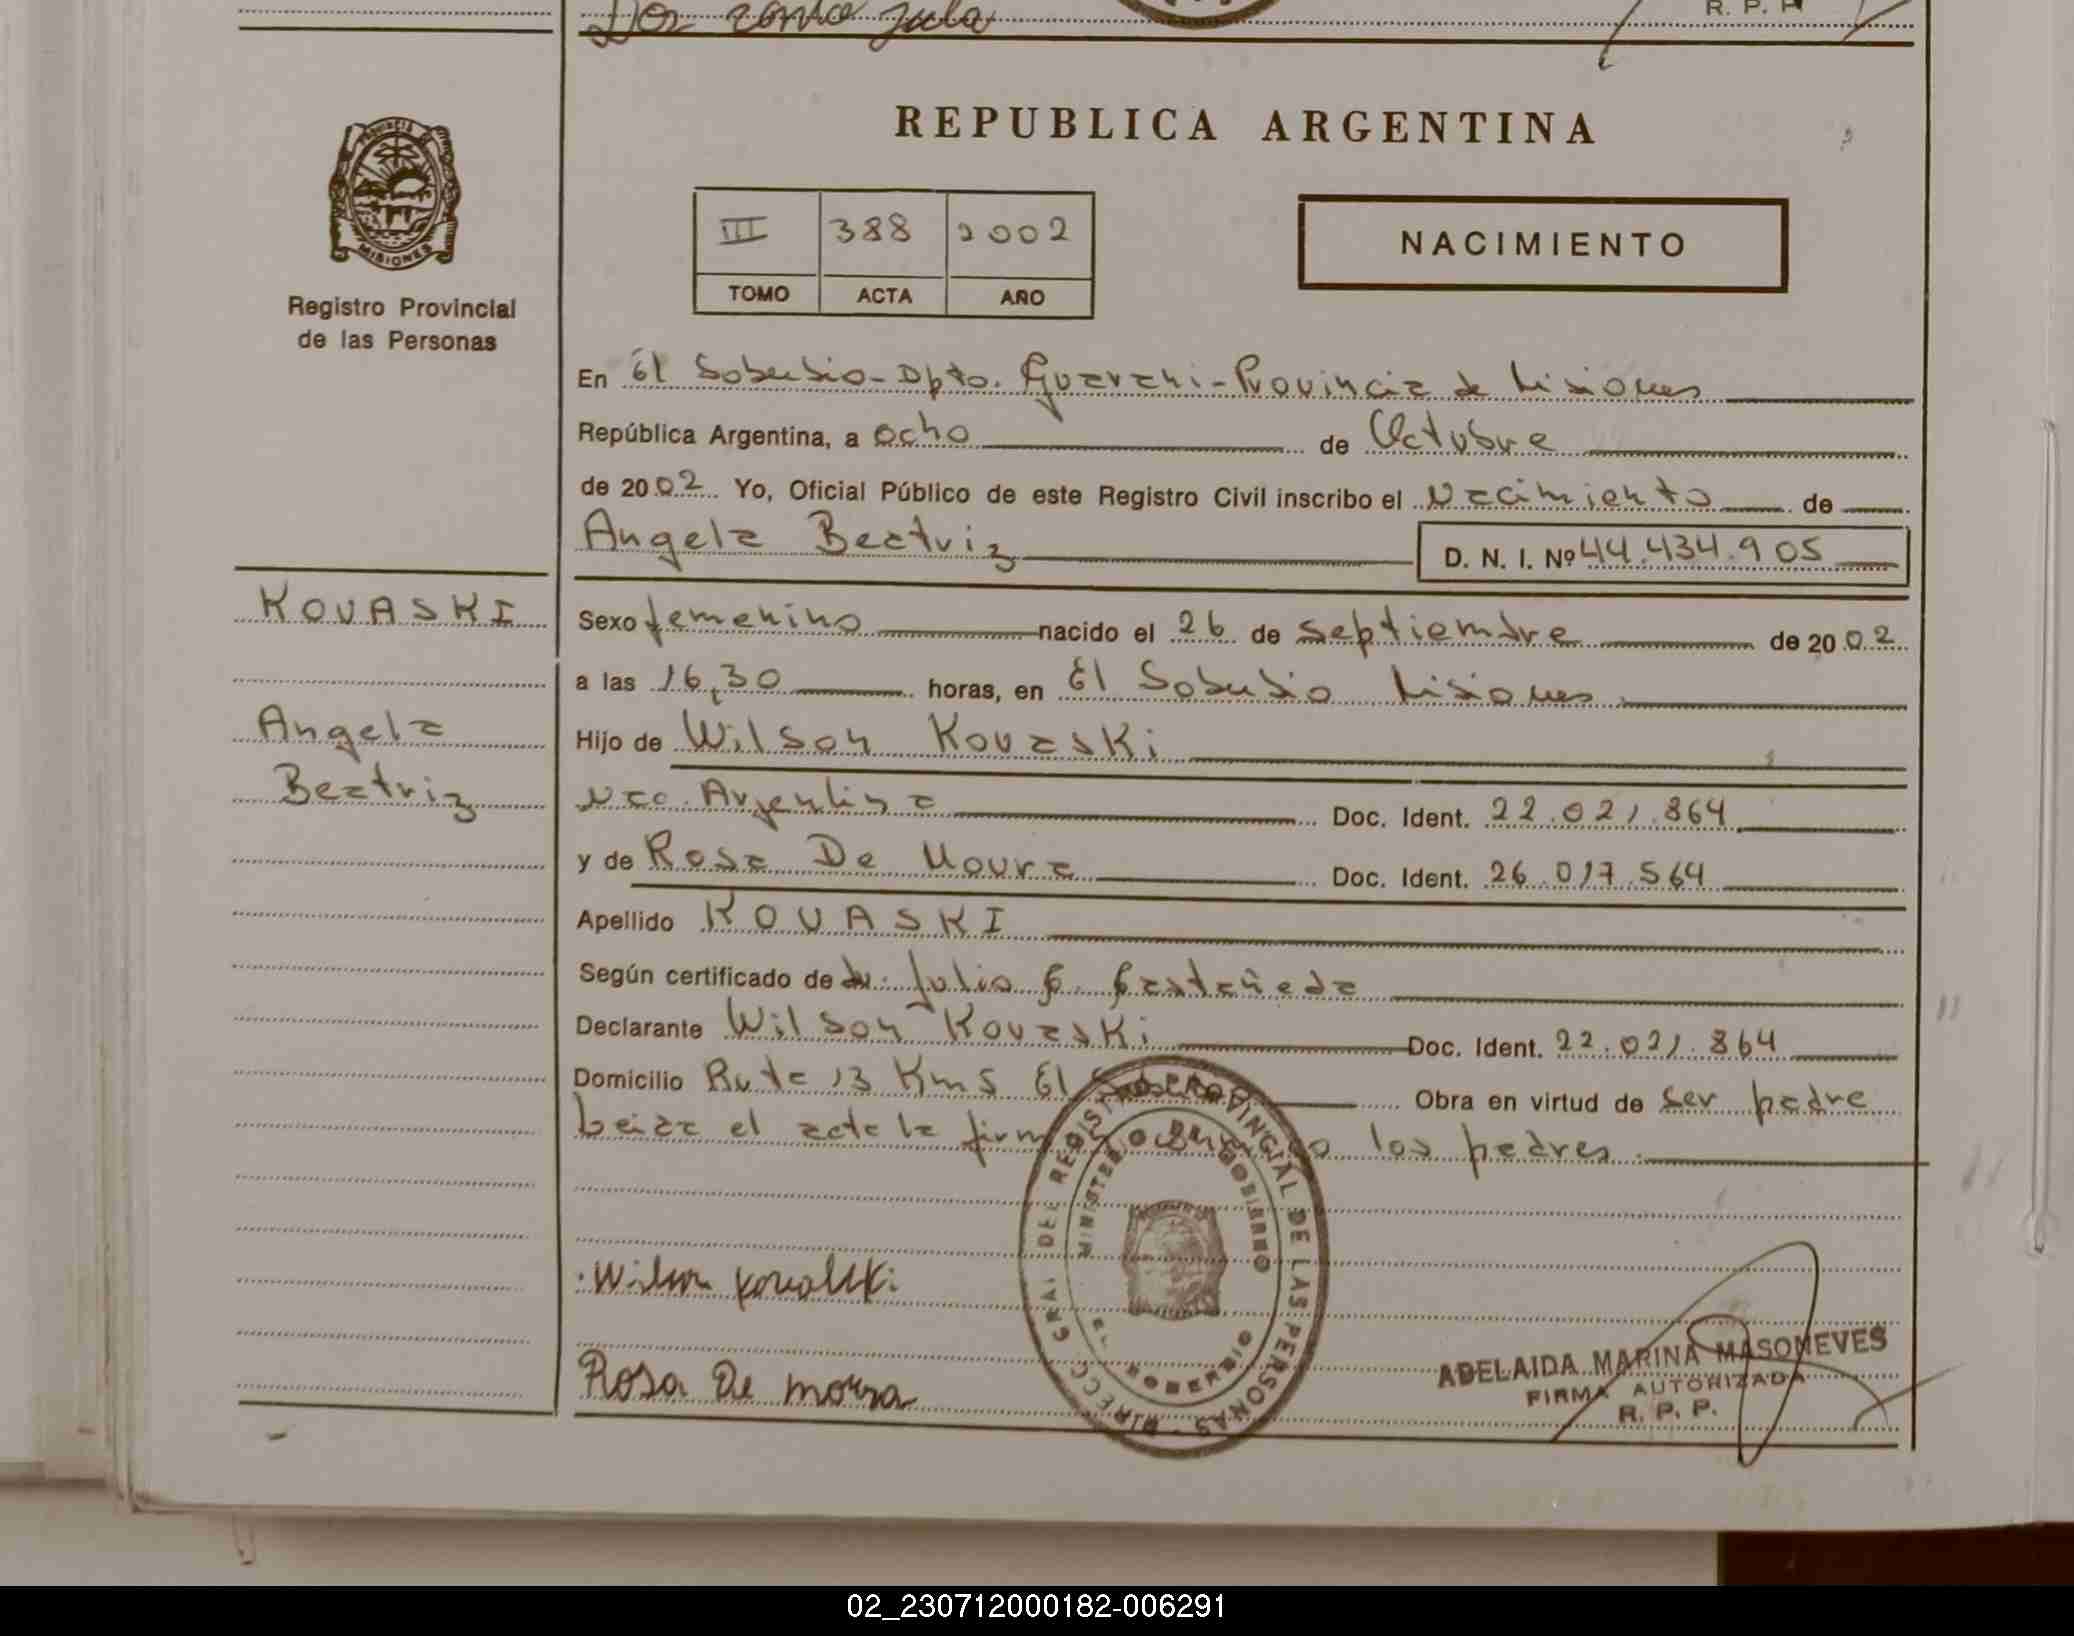 Dos conto Jula
R. P. P.
PROVINCIA
MISIONES
Registro Provincial
de las Personas
REPUBLICA ARGENTINA
III 388 2002
TOMO ACTA AÑO
NACIMIENTO
En El Soberbio - Dpto. Guarani - Provincia de Misiones
República Argentina, a ocho de Octubre
de 2002 Yo, Oficial Público de este Registro Civil inscribo el Nacimiento de
Angela Beatriz D. N. I. Nº 44.434.905
KOVASKI
Angela
Beatriz
Sexo femenino nacido el 26 de septiembre de 2002
a las 16,30 horas, en El Soberbio Misiones
Hijo de Wilson Kovaski
Nac. Argentina Doc. Ident. 22.021.864
y de Rosa De Moura Doc. Ident. 26.017.564
Apellido KOVASKI
Según certificado de dr. Julio C. Castañeda
Declarante Wilson Kovaski Doc. Ident. 22.021.864
Domicilio Ruta 13 Km 5 El Soberbio Obra en virtud de ser padre
Leida el acta la firman los padres
Wilson Kovalski
Rosa De moura
DIRECC. GRAL DEL REGISTRO PROVINCIAL DE LAS PERSONAS
MINISTERIO DE GOBIERNO
EL SOBERBIO
ADELAIDA MARINA MASONEVES
FIRMA AUTORIZADA
R. P. P.
02_230712000182-006291